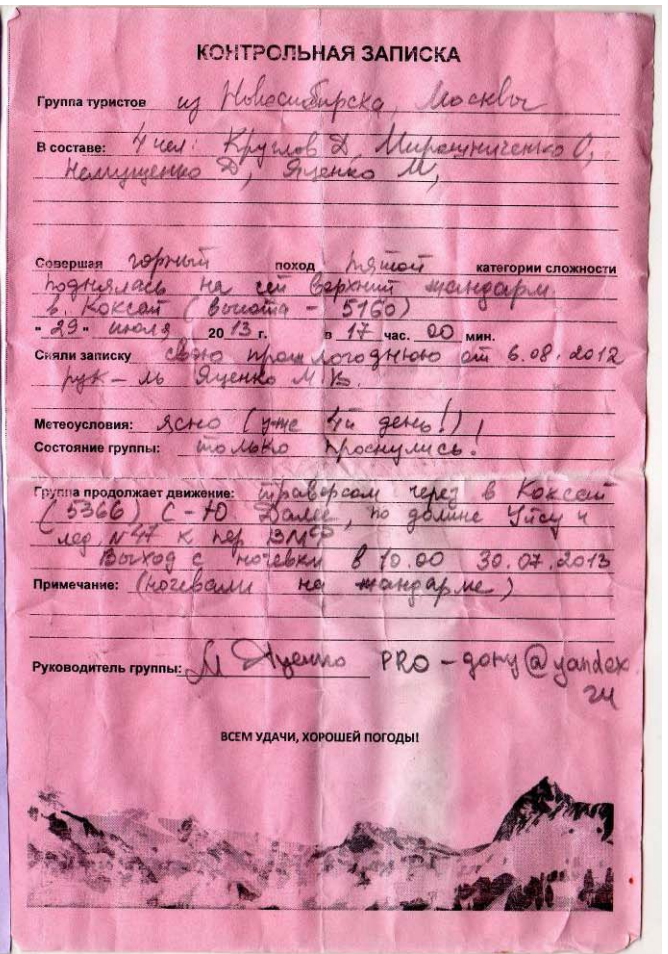 КОНТРОЛЬНАЯ ЗАПИСКА
Группа туристов из Новосибирска, Москвы
В составе: 4 чел: Круглов Д, Мирошниченко О,
Немущенко Д, Яценко М,
Совершая горный поход пятой категории сложности
поднялась на сей верхний жандарм
в. Коксай (высота – 5160)
"29" июля 2013 г. в 17 час. 00 мин.
Сняли записку свою прошлогоднюю от 6.08.2012
рук-ль Яценко М.В.
Метеоусловия: ясно (уже 4й день!)!
Состояние группы: только проснулись!
Группа продолжает движение: траверсом через в Коксай
(5366) С-Ю. Далее, по долине и
лед. N47 к пер ВМФ
Выход с ночевки в 10.00 30.07.2013
Примечание: (ночевали на жандарме)
Руководитель группы: М Яценко PRO-gory@yandex.
ru
ВСЕМ УДАЧИ, ХОРОШЕЙ ПОГОДЫ!